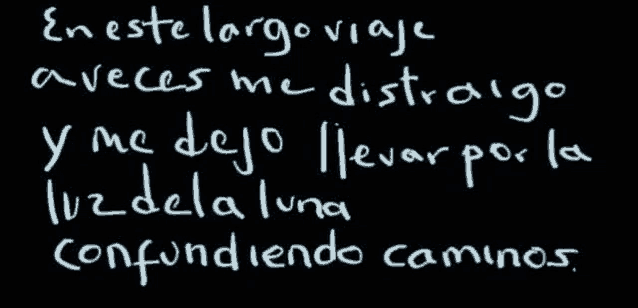 En este largo viaje
a veces me distraigo
y me dejo llevar por la
luz de la luna
confundiendo caminos.